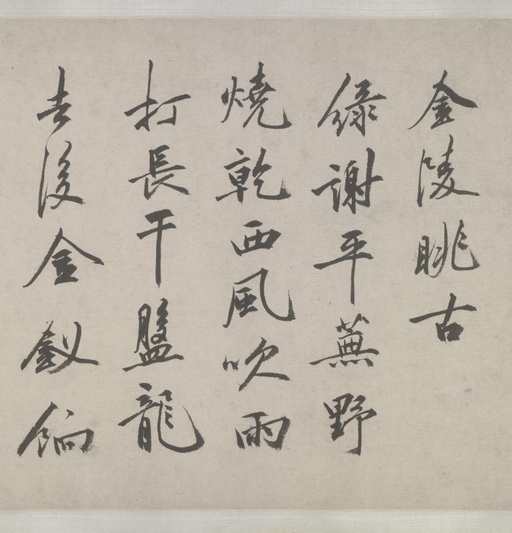 金陵眺古
綠謝平蕪野
燒乾西風吹雨
打長干盤龍
去後金釵餉